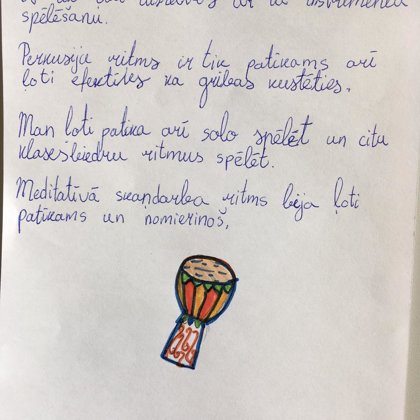 ar
spēlēšanu.
Perkusiju ritms ir tik patīkams arī
ļoti efektīvs ka gribas kustēties.
Man ļoti patika arī solo spēlēt un citu
klasesbiedru ritmus spēlēt.
Meditatīvā skaņdarba ritms bija ļoti
patīkams un nomierinoš.